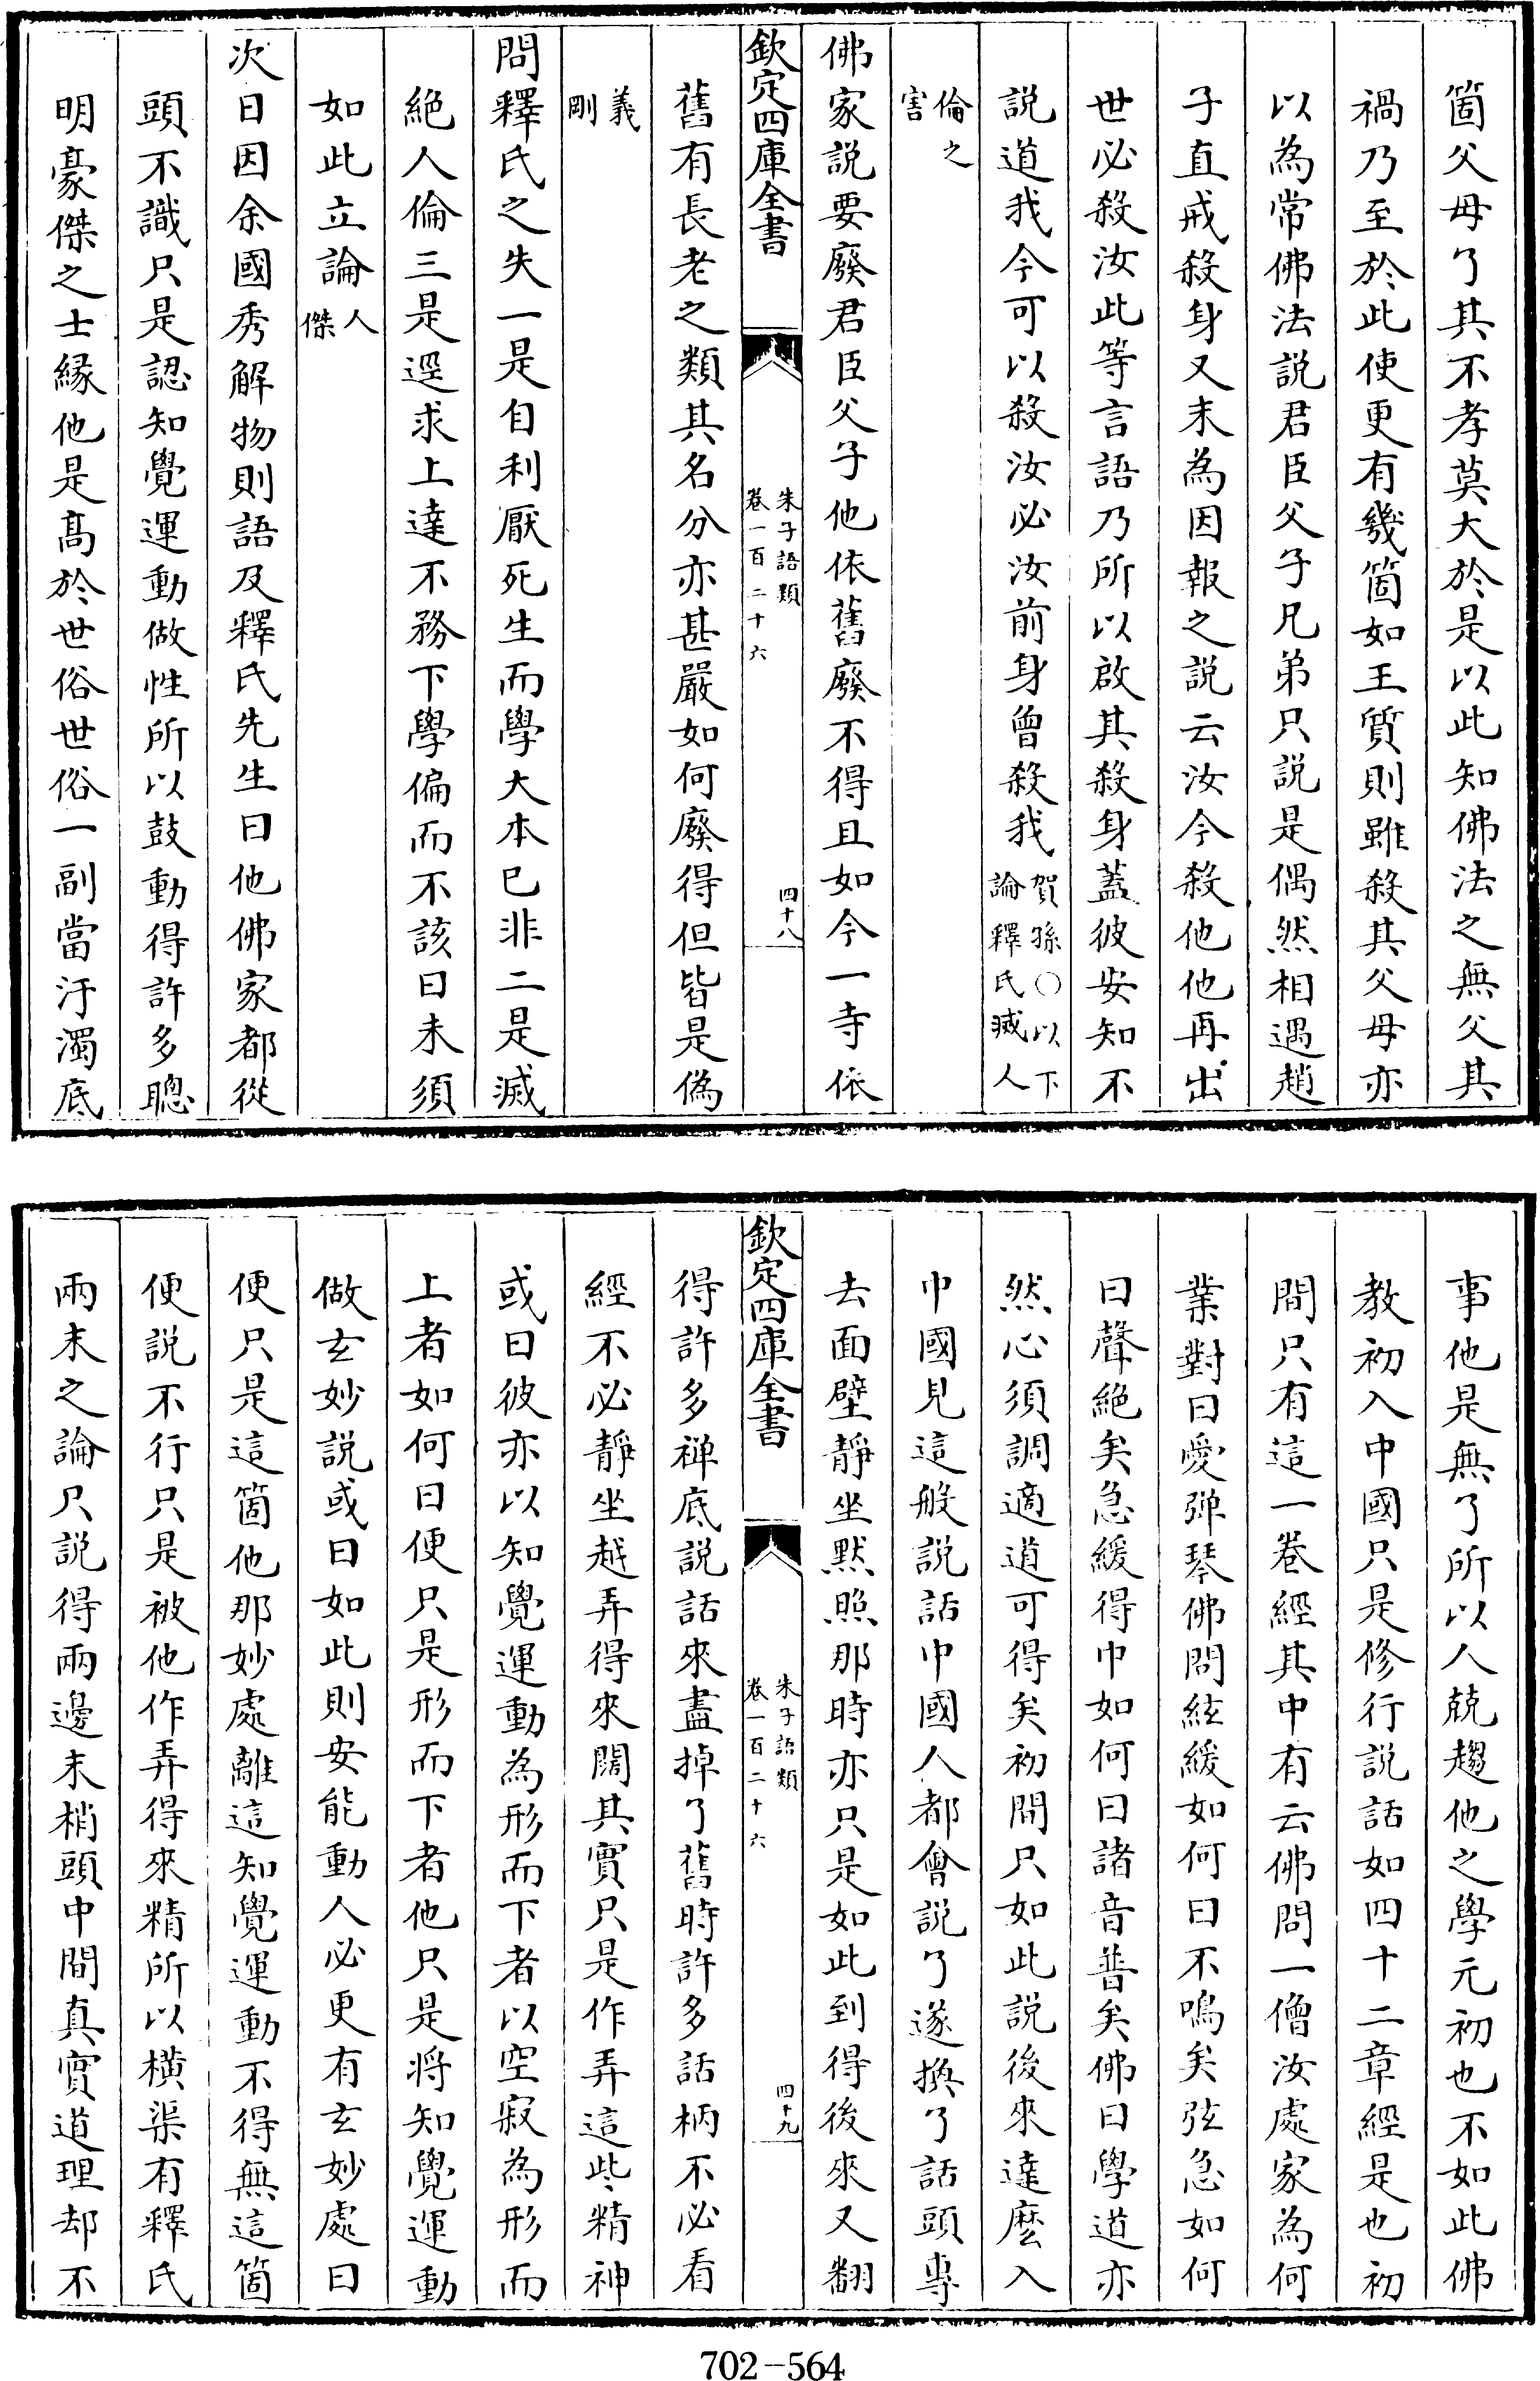 箇父母了其不孝莫大於是以此知佛法之無父其
禍乃至於此使更有幾箇如王質則雖殺其父母亦
以為常佛法説君臣父子兄弟只説是偶然相遇趙
子直戒殺身又末為因報之説云汝今殺他他再出
世必殺汝此等言語乃所以啟其殺身蓋彼安知不
説道我今可以殺汝必汝前身曾殺我賀孫○以下
論釋氏滅人
倫之
害
佛家説要廢君臣父子他依舊廢不得且如今一寺依
欽定四庫全書
朱子語類
卷一百二十六
四十八
舊有長老之類其名分亦甚嚴如何廢得但皆是偽
義
剛
問釋氏之失一是自利厭死生而學大本已非二是滅
絶人倫三是逕求上達不務下學偏而不該曰未須
如此立論人
傑
次日因余國秀解物則語及釋氏先生曰他佛家都從
頭不識只是認知覺運動做性所以鼓動得許多聰
明豪傑之士縁他是髙於世俗世俗一副當汙濁底
事他是無了所以人兢趨他之學元初也不如此佛
教初入中國只是修行説話如四十二章經是也初
間只有這一卷經其中有云佛問一僧汝處家為何
業對曰愛弹琴佛問絃緩如何曰不鳴矣弦急如何
曰聲絶矣急緩得中如何曰諸音普矣佛曰學道亦
然心須調適道可得矣初間只如此説後來達麽入
中國見這般説話中國人都會説了遂換了話頭專
去面壁靜坐黙照那時亦只是如此到得後來又翻
欽定四庫全書
朱子語類
卷一百二十六
四十九
得許多禅底説話來盡掉了舊時許多話柄不必看
經不必靜坐越弄得來闊其實只是作弄這些精神
或曰彼亦以知覺運動為形而下者以空寂為形而
上者如何曰便只是形而下者他只是將知覺運動
做玄妙説或曰如此則安能動人必更有玄妙處曰
便只是這箇他那妙處離這知覺運動不得無這箇
便説不行只是被他作弄得來精所以橫渠有釋氏
兩末之論只説得兩邊末梢頭中間真實道理却不
702-564